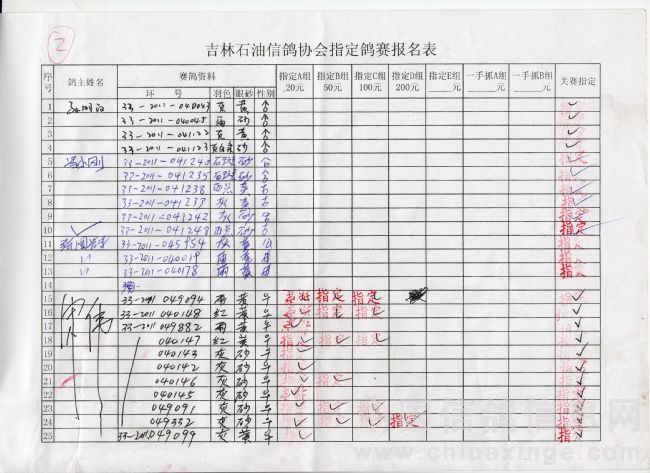 2
吉林石油信鸽协会指定鸽赛报名表
序号 鸽主姓名 赛鸽资料 指定A组 20元 指定B组 50元 指定C组 100元 指定D组 200元 指定E组____元 一手抓A组____元 一手抓B组____元 关赛指定
环 号 羽色 眼砂 性别
1 33-2011-040043 灰 黄
2 33-2011-040045 雨 砂
3 33-2011-041122 灰 黄
4 33-2011-041123 砂
5 冯小刚 33-2011-041240 砂 指定
6 33-2011-041235 砂 指定
7 33-2011-041238 雨点 黄 指定
8 33-2011-041237 灰 黄 指定
9 33-2011-041242 灰 砂 指定
10 33-2011-041248 雨点 砂 指定
11 33-2011-045954 灰 黄 指定
12 33-2011-040019 雨 黄 指定
13 33-2011-040178 雨 黄 指定
14
15 伟 33-2011 049094 雨 黄 指定 指定 指定 指定
16 33-2011 040148 红 黄 指定 指定 指定 指定
17 33-2011 049882 雨 黄 指定 指定
18 040147 红 黄 指定 指定 指定 指定
19 040143 灰 砂 指定 指定
20 040142 灰 砂 指定 指定
21 040146 灰 砂 指定 指定 指定
22 040145 灰 砂 指定 指定
23 049091 灰 砂 指定 指定 指定 指定
24 049332 灰 砂 指定 指定 指定 指定 指定
25 33-2011 049099 灰 黄 指定 指定
信鸽信息网
www.chinaxinge.com